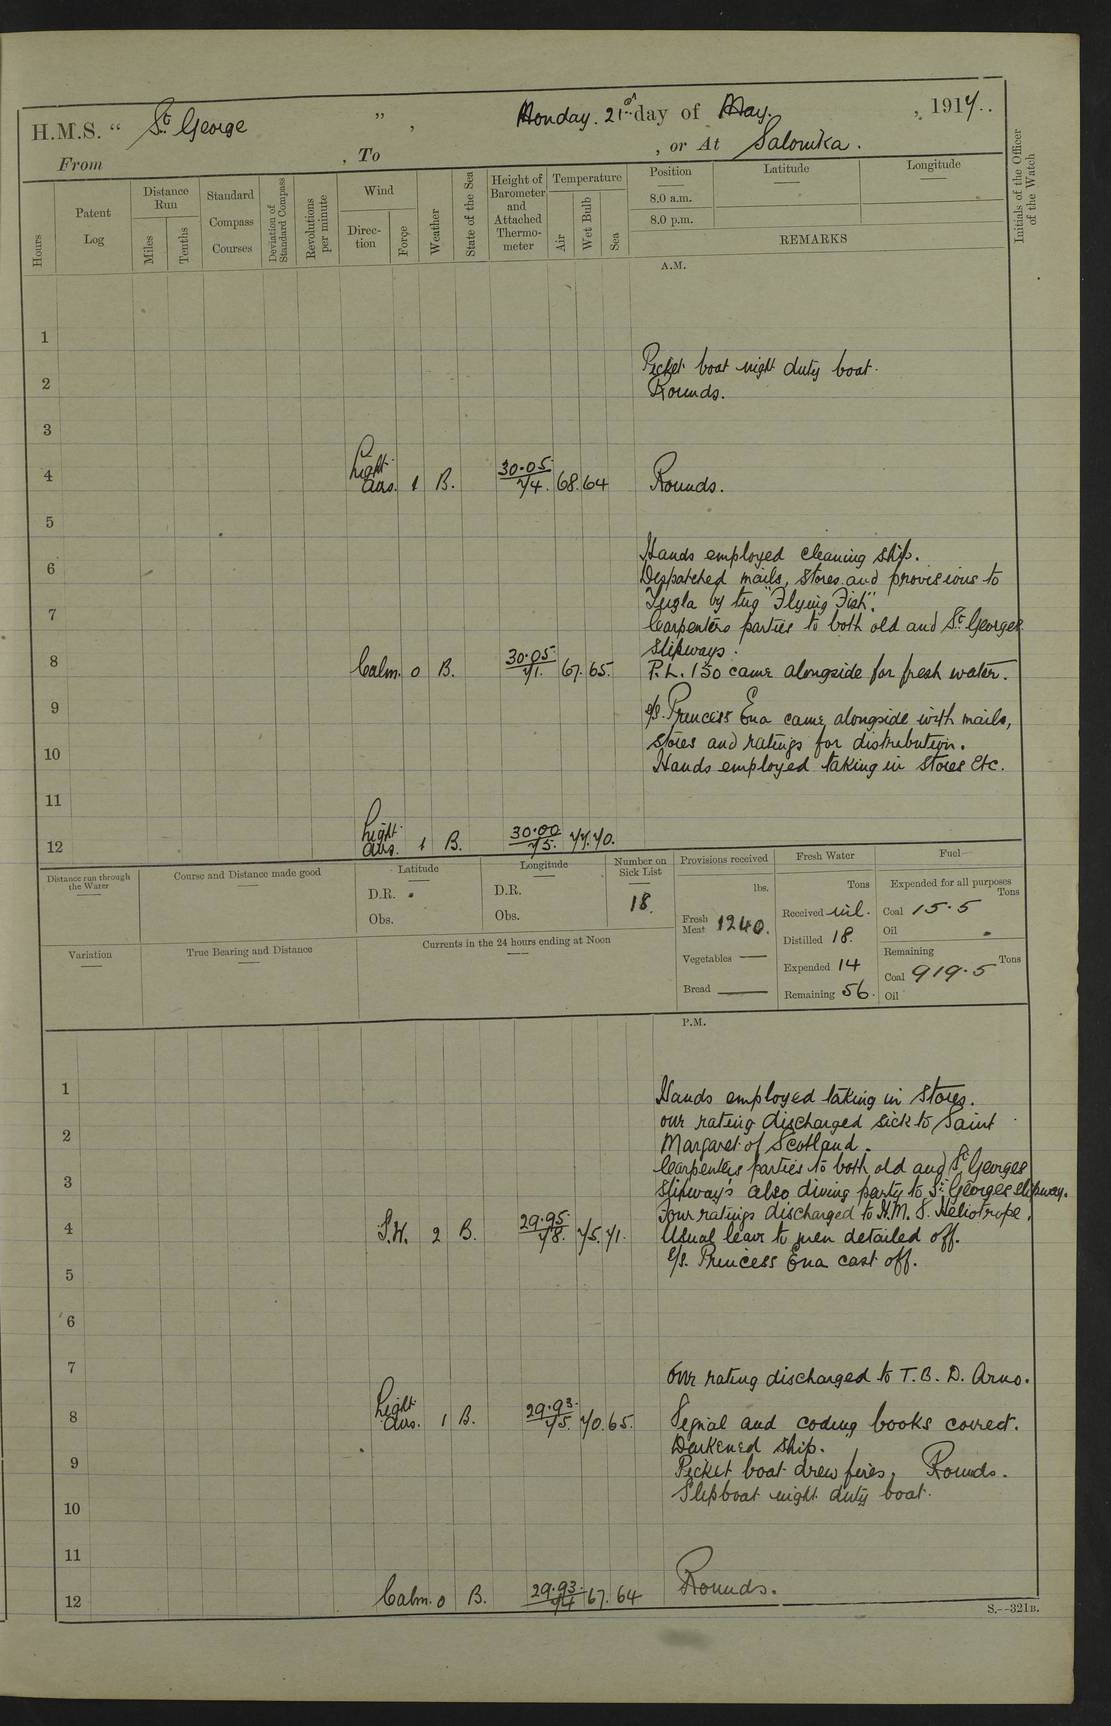 H.M.S. " St George " , Monday. 21st day of May. , 1917..
From , To , or At Salonika.
Hours
Patent Log
Distance Run
Miles
Tenths
Standard Compass Courses
Deviation of Standard Compass
Revolutions per minute
Wind
Direction
Force
Weather
State of the Sea
Height of Barometer and Attached Thermometer
Temperature
Air
Wet Bulb
Sea
Position
8.0 a.m.
8.0 p.m.
Latitude
Longitude
REMARKS
Initials of the Officer of the Watch
A.M.
1
Picket boat night duty boat.
2
Rounds.
3
4 Light airs. 1 B. 30.05 74. 68. 64 Rounds.
5
Hands employed cleaning ship.
6
Despatched mails, stores and provisions to
Tuzla by tug "Flying Fish".
7
Carpenters parties to both old and St Georges
slipways.
8 Calm. 0 B. 30.05 71. 67. 65. P.L. 150 came alongside for fresh water.
9
s/s. Princess Ena came alongside with mails,
stores and ratings for distribution.
10
Hands employed taking in stores etc.
11
12 Light airs. 1 B. 30.00 75. 77. 70.
Distance run through the Water
Course and Distance made good
Latitude
D.R.
Obs.
Longitude
D.R.
Obs.
Number on Sick List
18.
Provisions received
lbs.
Fresh Meat 1240.
Vegetables —
Bread —
Fresh Water
Tons
Received nil.
Distilled 18.
Expended 14
Remaining 56.
Fuel
Expended for all purposes
Tons
Coal 15.5
Oil
Remaining
Tons
Coal 919.5
Oil
Variation
True Bearing and Distance
Currents in the 24 hours ending at Noon
P.M.
1
Hands employed taking in stores.
One rating discharged sick to Saint
2
Margaret of Scotland.
Carpenters parties to both old and St Georges
3
slipways also diving party to St Georges slipway.
Four ratings discharged to H.M.S. Heliotrope.
4 S.W. 2 B. 29.95 78. 75. 71. Usual leave to men detailed off.
s/s. Princess Ena cast off.
5
6
7
One rating discharged to T.B.D. Arno.
8 Light airs. 1 B. 29.93. 75. 70. 65. Signal and coding books correct.
Darkened ship.
9
Picket boat drew fires. Rounds.
Slipboat night duty boat.
10
11
12 Calm. 0 B. 29.93. 74 67. 64 Rounds.
S.—321B.